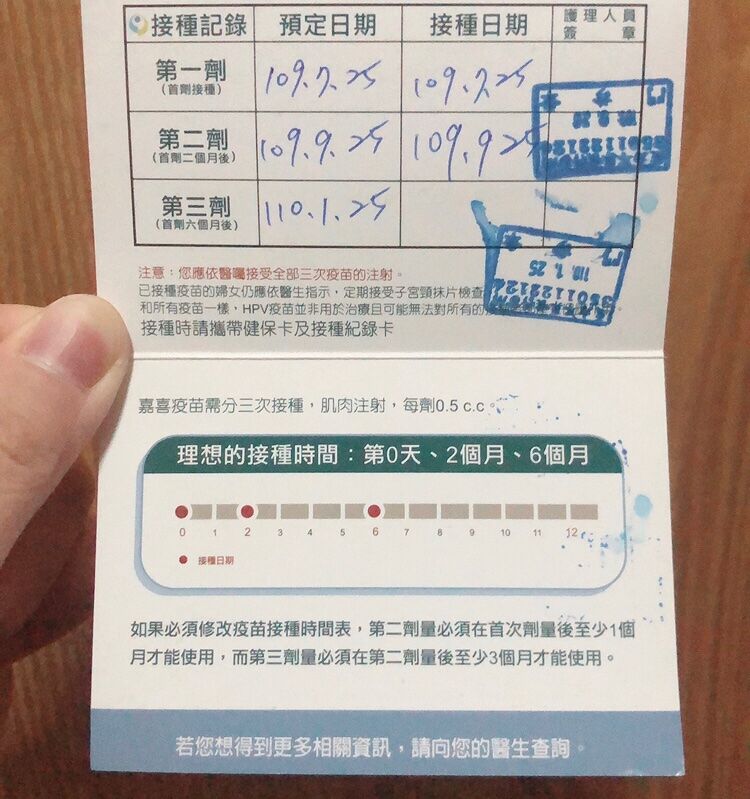 接種記錄 預定日期 接種日期 護理人員簽章
第一劑 109.7.25 109.7.25
(首劑接種)
第二劑 109.9.25 109.9.25
(首劑二個月後)
第三劑 110.1.25
(首劑六個月後)
110.1.25
3501122124
注意：您應依醫囑接受全部三次疫苗的注射。
已接種疫苗的婦女仍應依醫生指示，定期接受子宮頸抹片檢查
和所有疫苗一樣，HPV疫苗並非用於治療且可能無法對所有的
接種時請攜帶健保卡及接種紀錄卡
嘉喜疫苗需分三次接種，肌肉注射，每劑0.5 c.c。
理想的接種時間：第0天、2個月、6個月
0 1 2 3 4 5 6 7 8 9 10 11 12
接種日期
如果必須修改疫苗接種時間表，第二劑量必須在首次劑量後至少1個
月才能使用，而第三劑量必須在第二劑量後至少3個月才能使用。
若您想得到更多相關資訊，請向您的醫生查詢。